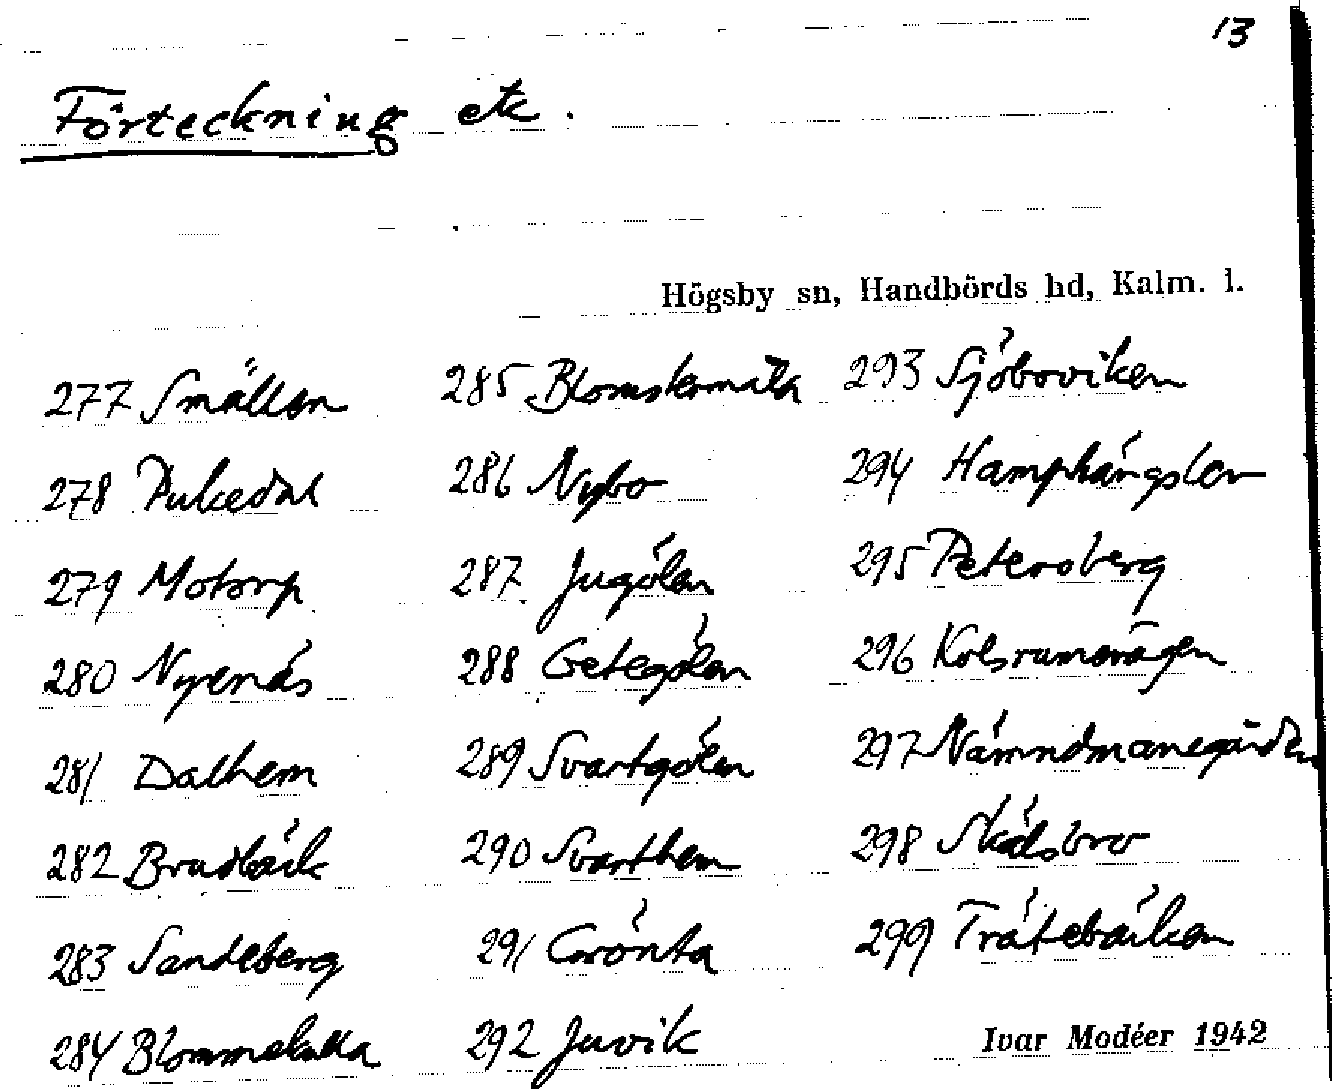 13
Förteckning etc.
Högsby sn, Handbörds hd, Kalm. l.
277 Smällen 285 Blomstermåla 293 Sjöboviken
278 Pukedal 286 Nybo 294 Hamphängslen
279 Motorp 287 Jugölen 295 Petersberg
280 Nyenäs 288 Getegölen 296 Kolsrumsvägen
281 Dalhem 289 Svartgölen 297 Nämndmansgården
282 Brudbäck 290 Svarthem 298 Skädsbro
283 Sandsberg 291 Grönta 299 Trätebäcken
284 Blommekulla 292 Juvik
Ivar Modéer 1942